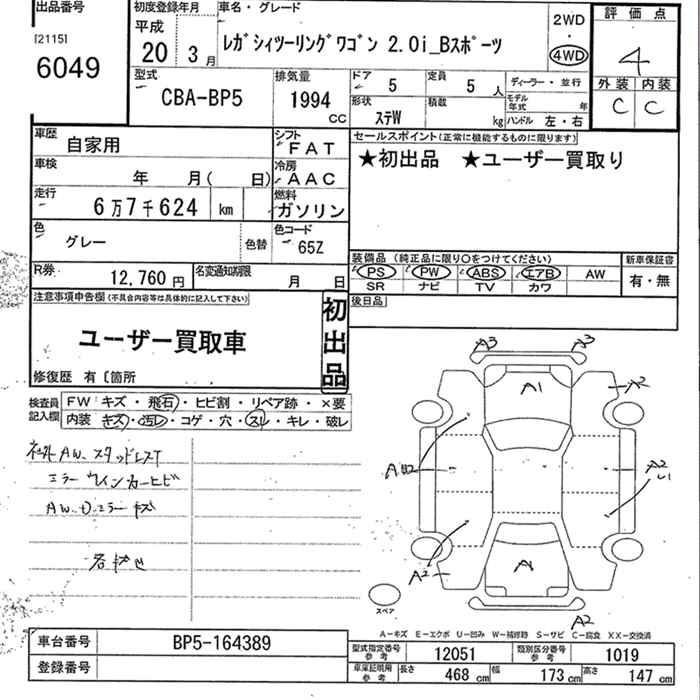 出品番号
[2115]
6049
初度登録年月
平成
20 3月
車名・グレード
レガシィツーリングワゴン 2.0i_Bスポーツ
2WD
4WD
評価点
4
外装 内装
C C
型式
CBA-BP5
排気量
1994
CC
ドア 5
定員 5 人
ディーラー・並行
形状 ステW
積載 kg
モデル年式 年
ハンドル 左・右
車歴 自家用
シフト FAT
車検 年 月( 日)
冷房 AAC
走行 6万7千624 km
燃料 ガソリン
色 グレー 色替
色コード 65Z
R券 12,760円
名変通知期限 月 日
セールスポイント(正常に機能するものに限ります)
★初出品 ★ユーザー買取り
装備品 (純正品に限り〇をつけてください)
新車保証書
PS PW ABS エアB AW
SR ナビ TV カワ
有・無
後日品
注意事項申告欄(不具合内容等は具体的に記入して下さい)
ユーザー買取車
初出品
修復歴 有 〔箇所
検査員記入欄
FW キズ・飛石・ヒビ割・リペア跡・×要
内装 キズ・汚レ・コゲ・穴・スレ・キレ・破レ
社外AW、スタッドレスT
ミラーウインカーヒビ
AW・Dミラーキズ
A3 A3
A1
A2
A2
A2
A
A2
スペア
A−キズ E−エクボ U−凹み W−補修跡 S−サビ C−腐食 XX−交換済
車台番号 BP5-164389
登録番号
型式指定番号 参考 12051
類別区分番号 参考 1019
車庫証明用 参考 長さ 468 cm 幅 173 cm 高さ 147 cm